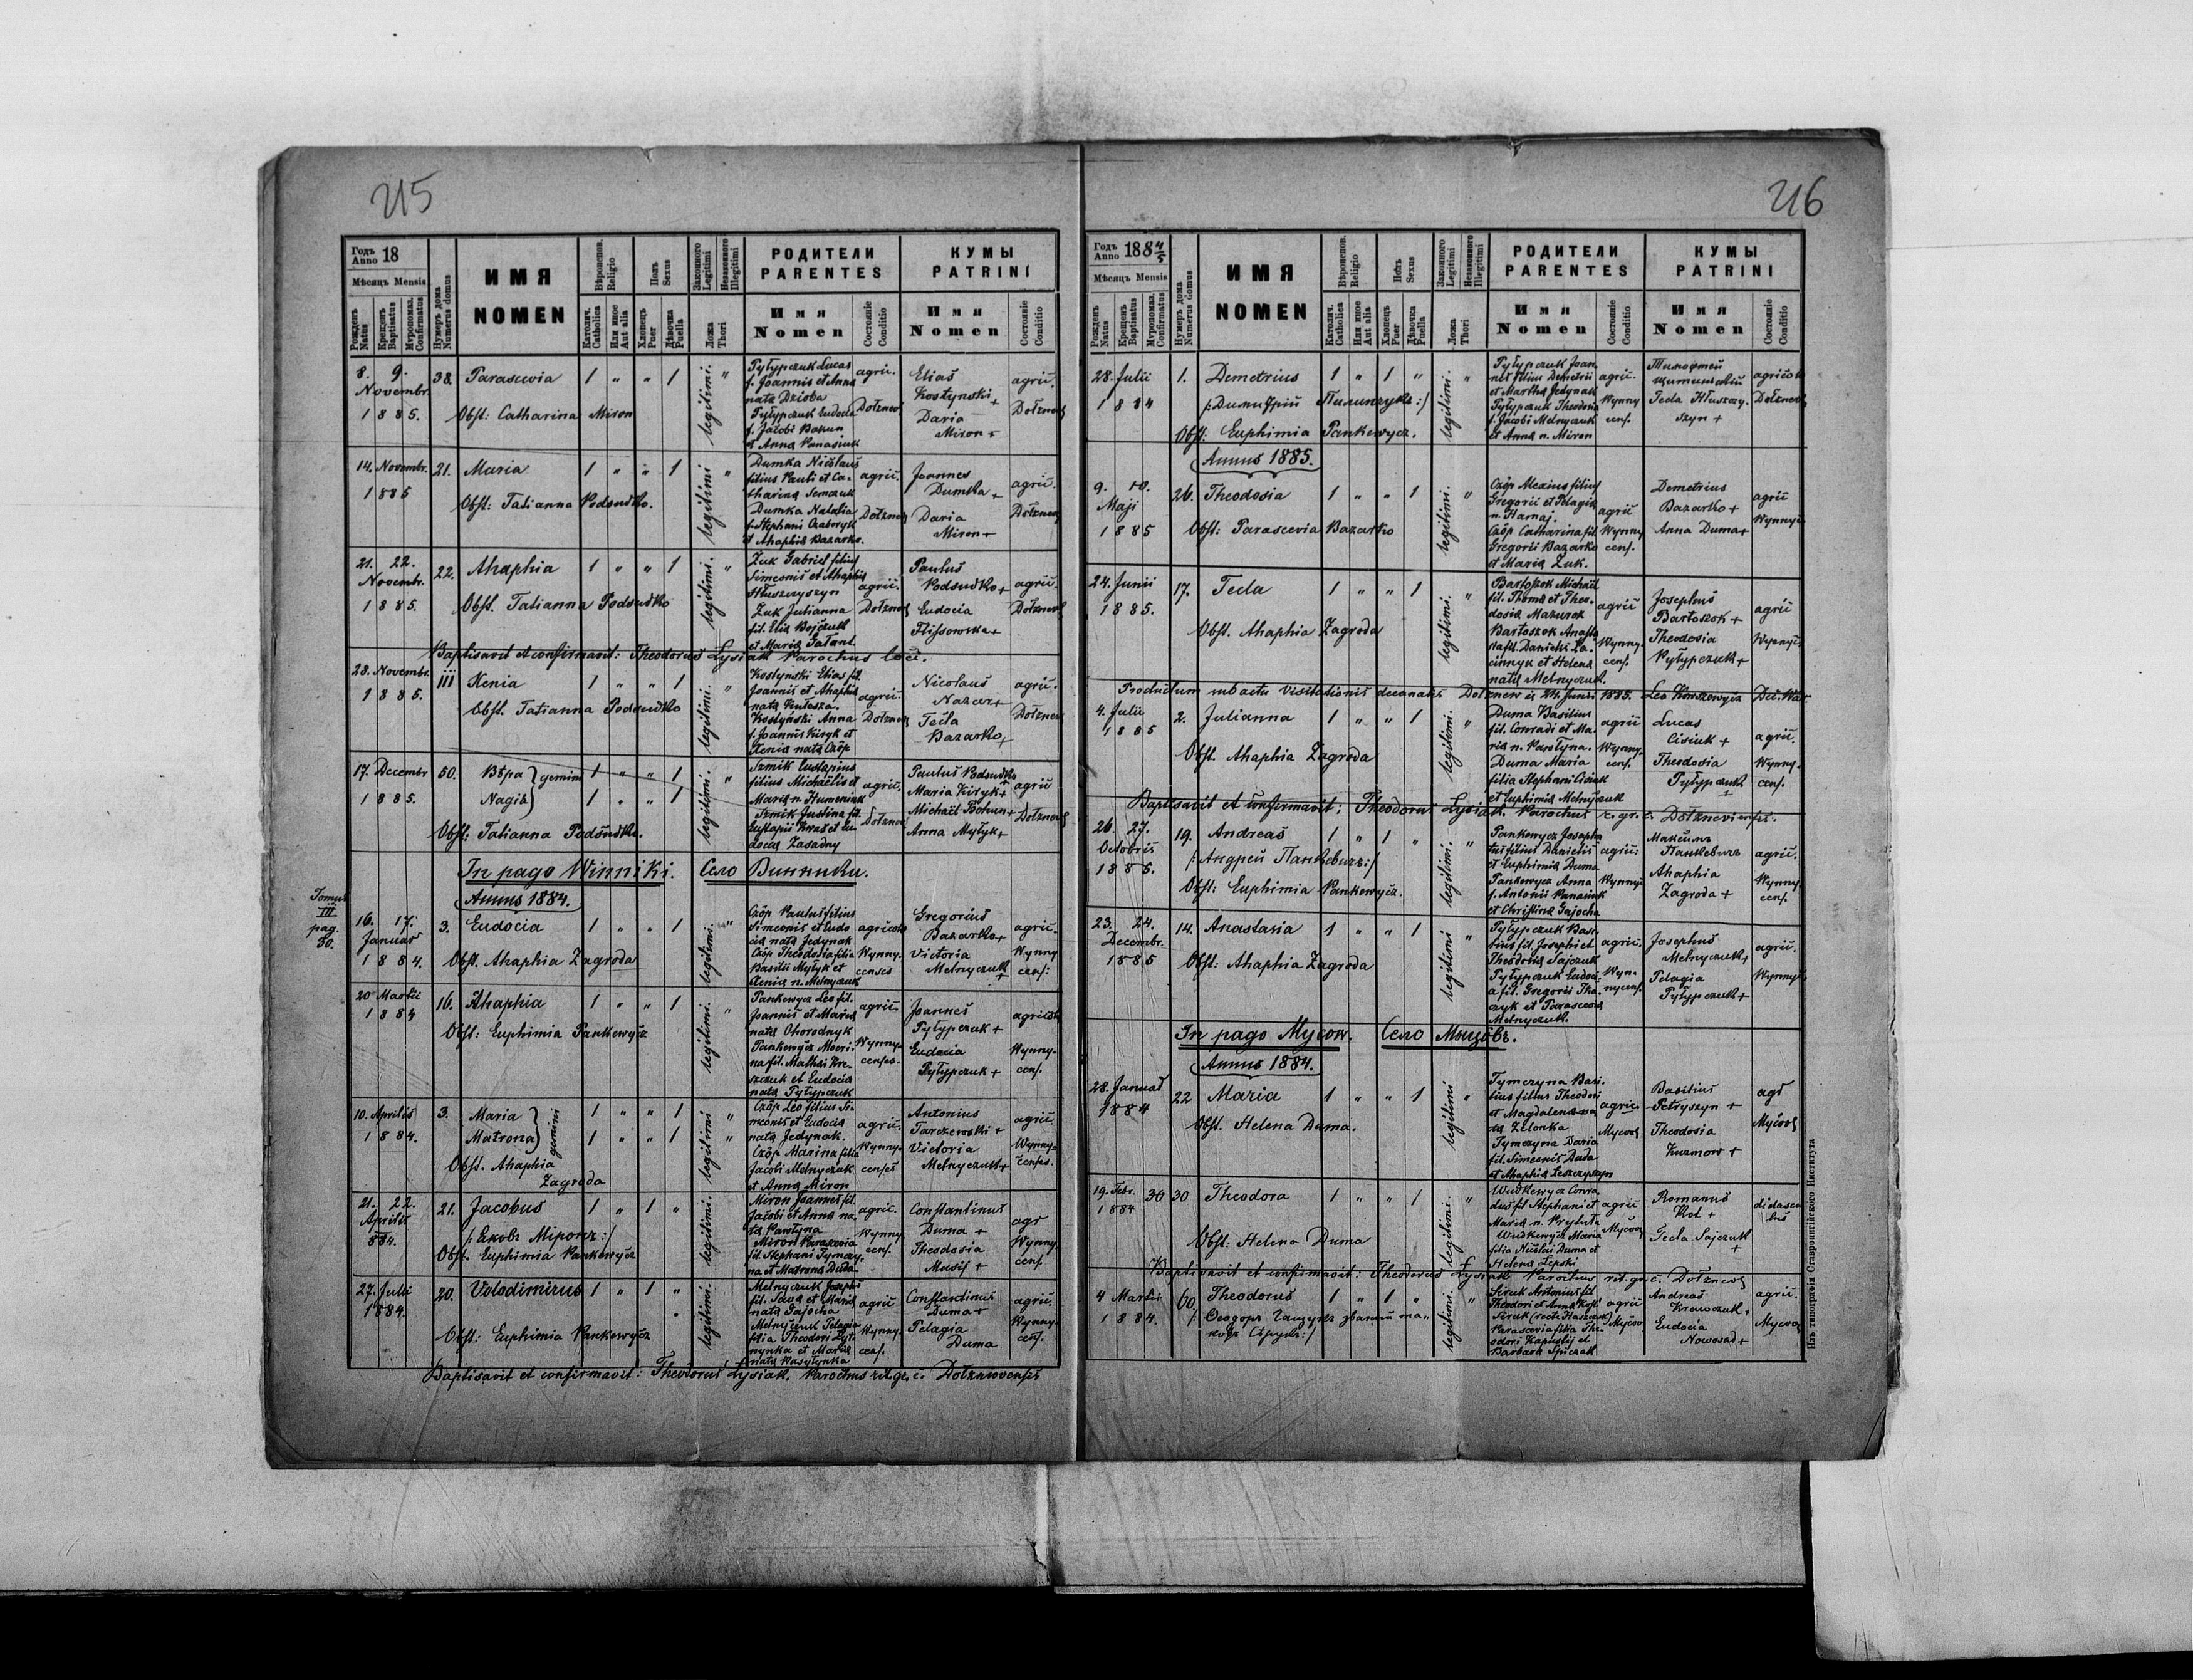 215
Годъ Anno 18
Мѣсяцъ Mensis
Рожденъ Natus
Крещенъ Baptisatus
Мѵропомаз. Confirmatus
Нумеръ дома Numerus domus
ИМЯ
NOMEN
Вѣроиспов. Religio
Католич. Catholica
Или иное Aut alia
Полъ Sexus
Хлопецъ Puer
Дѣвочка Puella
Законного Legitimi
Незаконного Illegitimi
Ложа Thori
РОДИТЕЛИ
PARENTES
Имя
Nomen
Состояніе Conditio
КУМЫ
PATRINI
Имя
Nomen
Состояніе Conditio
8. 9. Novembr. 1885. 38. Parascevia 1 " " 1 legitimi. "
Obst: Catharina Miron
Pyłypczuk Lucas
f. Joannis et Anna
nata Dzioba
Pyłypczuk Eudocia
f. Jacobi Bohun
et Anna Panasiuk
agric.
Dołznow
Elias
Kostynski +
Daria
Miron +
agric.
Dołznow
14. Novembr. 1885 21. Maria 1 " " 1 legitimi "
Obst: Tatianna Podsudko.
Dumka Nicolaus
filius Pauli et Ca-
tharina Semczuk
Dumka Natalia
f. Stephani Czaboryk
et Ahaphia Bazarko.
agric.
Dołznow
Joannes
Dumka +
Daria
Miron +
agric.
Dołznow
21. 22. Novembr. 1885. 22. Ahaphia 1 " " 1 legitimi. "
Obst. Tatianna Podsudko
Zuk Gabriel filius
Simeonis et Ahaphia
Hłuszczyszyn
Zuk Julianna
fil. Elia Bojczuk
et Maria Gałant
agric.
Dołznow
Paulus
Podsudko +
Eudocia
Flissowska +
agric.
Dołznow
Baptisavit et confirmavit: Theodorus Lysiak Parochus loci.
23. Novembr. 1885. 111 Xenia 1 " " 1 legitimi. "
Obst. Tatianna Podsudko
Kostynski Elias fil.
Joannis et Ahaphia
nata Kulesza.
Kostyński Anna
f. Joannis Kiryk et
Xenia nata Czöp
agric.
Dołznow
Nicolaus
Nazar +
Tecla
Bazarko +
agric.
Dołznow
17. Decembr 1885. 50. Вѣра } gemini 1 " " 1 legitimi. "
Nagia } 1 " " 1
Obst: Tatianna Podsudko.
Szmik Eustapius
filius Michaëlis et
Maria n. Humeniuk
Szmik Justina fil.
Eustapii Kras et Eu-
docia Zasadny
agric.
Dołznow
Paulus Podsudko
Maria Kiryk +
Michaël Bohun +
Anna Myłyk +
agric
Dołznow
In pago Winniki. Село Винники.
Annus 1884.
Tomus
III
pag.
30.
16. 17. Januar 1884. 3. Eudocia 1 " " 1 legitimi. "
Obst. Ahaphia Zagroda
Czöp Paulus filius
Simeonis et Eudo
cia nata Jedynak
Czöp Theodosia filia
Basilii Myłyk et
Xenia n. Melnyczuk
agricola
Wynny-
censes
Gregorius
Bazarko +
Victoria
Melnyczuk +
agric.
Wynny
cens:
20 Martii 1884 16. Ahaphia 1 " " 1 legitimi. "
Obst: Euphimia Pankewycz
Pankewycz Leo fil.
Joannis et Maria
nata Ohorodnyk
Pankewycz Mari-
na fil. Mathai Kre-
szczuk et Eudocia
nata Pyłypczuk
agric.
Wynny-
censes.
Joannes
Pyłypczuk +
Eudocia
Pyłypczuk +
agricola
Wynny-
cens.
10. Aprilis 1884. 3. Maria } gemini 1 " " 1 legitimi "
Matrona } 1 " " 1 "
Obst. Ahaphia
Zagroda
Czöp Leo filius Si-
meonis et Eudocia
nata Jedynak.
Czöp Marina filia
Jacobi Melnyczuk
et Anna Miron
agric.
Wynny-
censes
Antonius
Tarczewski +
Victoria
Melnyczuk +
agric.
Wynny-
censes.
21. 22. Aprilis 884. 21. Jacobus 1 " 1 " legitimi.
/: Яковъ Міронъ :/
Obst. Euphimia Pankewycz
Miron Joannes fil.
Jacobi et Anna na-
ta Parłyna
Miron Parascevia
fil. Stephani Tymczy-
na et Matrona Duda
agric.
Wynny
cens.
Constantinus
Duma +
Theodosia
Musij +
agr
Wynny
cens.
27. Julii 1884. 20. Volodimirus 1 " 1 " legitimi.
Obst: Euphimia Pankewycz
Melnyczuk Josephi
fil. Sava et Maria
nata Gajocha
Melnyczuk Pelagia
filia Theodori Lyt-
wynka et Maria
nata Wasyłynka
agric
Wynny-
cens.
Constantinus
Duma +
Pelagia
Duma
agric.
Wynny-
cens.
Baptisavit et confirmavit: Theodorus Lysiak. Parochus rit. gr. c. Dołznowensis
216
Годъ Anno 1884/5
Мѣсяцъ Mensis
Рожденъ Natus
Крещенъ Baptisatus
Мѵропомаз. Confirmatus
Нумеръ дома Numerus domus
ИМЯ
NOMEN
Вѣроиспов. Religio
Католич. Catholica
Или иное Aut alia
Полъ Sexus
Хлопецъ Puer
Дѣвочка Puella
Законного Legitimi
Незаконного Illegitimi
Ложа Thori
РОДИТЕЛИ
PARENTES
Имя
Nomen
Состояніе Conditio
КУМЫ
PATRINI
Имя
Nomen
Состояніе Conditio
28. Julii 1884 1. Demetrius 1 " 1 " legitimi. "
/: Димитрій Пилипчукъ :/
Obst: Euphimia Pankewycz.
Pyłypczuk Joan-
nes filius Demetrii
et Martha Jedynak
Pyłypczuk Theodosia
f. Jacobi Melnyczuk
et Anna n. Miron
agric.
Wynny
cens.
Тимофтей
Tecla Hłuszczy-
szyn +
agricola
Dołznow
Annus 1885.
9. 10. Maji 1885 26. Theodosia 1 " " 1 legitimi. "
Obst: Parascevia Bazarko
Czöp Alexius filius
Gregorii et Pelagia
n. Harnaj.
Czöp Catharina fil.
Gregorii Bazarko
et Maria Zuk.
agric
Wynny
cens.
Demetrius
Bazarko +
Anna Duma +
agric
Wynny
24. Junii 1885. 17. Tecla 1 " " 1 legitimi. "
Obst. Ahaphia Zagroda
Bartoszok Michaël
fil. Thoma et Theo-
dosia Mazurok
Bartoszok Anasta-
sia fil. Danielis La-
cinnyk et Helena
nata Melnyczuk.
agric
Wynny-
cens.
Josephus
Bartoszok +
Theodosia
Pyłypczuk +
agric
Wynny
Productum in actu Visitationis decanalis Dołznow d. 24. Junii 1885.
4. Julii 1885 2. Julianna 1 " " 1 legitimi. "
Obst. Ahaphia Zagroda
Duma Basilius
fil. Conradi et Ma-
ria n. Parłyna.
Duma Maria
filia Stephani Cisiuk
et Euphimia Melnyczuk
agric
Wynny-
cens.
Lucas
Cisiuk +
Theodosia
Pyłypczuk +
agric.
Wynny-
cens.
Baptisavit et confirmavit: Theodorus Lysiak. Parochus r. gr. c. Dołznoviensis.
26. 27. Octobris 1885. 19. Andreas 1 " 1 " legitimi. "
/: Андрей Панкевичъ :/
Obst: Euphimia Pankewycz.
Pankewycz Josepha-
tus filius Danielis
et Euphimia Duma
Pankewycz Anna
f. Antonii Panasiuk
et Christina Gajocha
agric:
Wynny
Максимъ
Панкевичъ
Ahaphia
Zagroda +
agric.
Wynny-
cens.
23. 24. Decembr. 1885 14. Anastasia 1 " " 1 legitimi "
Obst: Ahaphia Zagroda
Pyłypczuk Basi-
lius fil. Josephi et
Theodosia Sajczuk
Pyłypczuk Eudoci-
a fil. Gregorii Tka-
czyk et Parascevia
Melnyczuk.
agric.
Wyn-
nycens.
Josephus
Melnyczuk +
Pelagia
Pyłypczuk +
agric.
Wynny
In pago Mycow. Село Мыцôвъ.
Annus 1884.
28. Januar 1884 22 Maria 1 " " 1 legitimi "
Obst. Helena Duma.
Tymczyna Basi-
lius filius Theodori
et Magdalena na-
ta Zelonka
Tymczyna Daria
fil. Simeonis Duda
et Ahaphia Leszczyszyn
agric.
Mycow
Basilius
Petryszyn +
Theodosia
Kuzmow +
agr
Mycow
19. Febr. 1884 30 30 Theodora 1 " " 1 legitimi. "
Obst: Helena Duma
Wudkewycz Conra-
dus fil Stephani et
Maria n. Prytuła
Wudkewycz Maria
filia Nicolai Duma et
Helena Lepski
agric
Mycow
Romanus
Kot +
Tecla Sajczuk
+
didasca
lus
Baptisavit et confirmavit: Theodorus Lysiak Parochus rit. gr. c. Dołznow
4 Martii 1884. 60 Theodorus 1 " 1 " legitimi. "
/: Ѳеодоръ Гащукъ званый та-
кожъ Сѣрукъ :/
Siruk Antonius fil
Theodori et Anna
Siruk (recte Haszczuk)
Parascevia filia The-
odori Kapustij et
Barbara Spiczak
agric
Mycow
Andreas
Krawczuk +
Eudocia
Nowosad +
agric.
Mycow
Изъ типографіи Ставропигійского Института